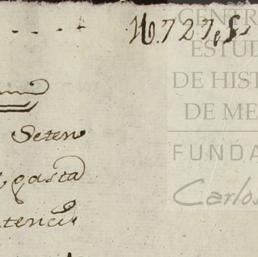 16.727,,S.
CENTR
ESTUD
DE HIST
DE ME
FUNDA
Carlos
Seten
gasta
tencis